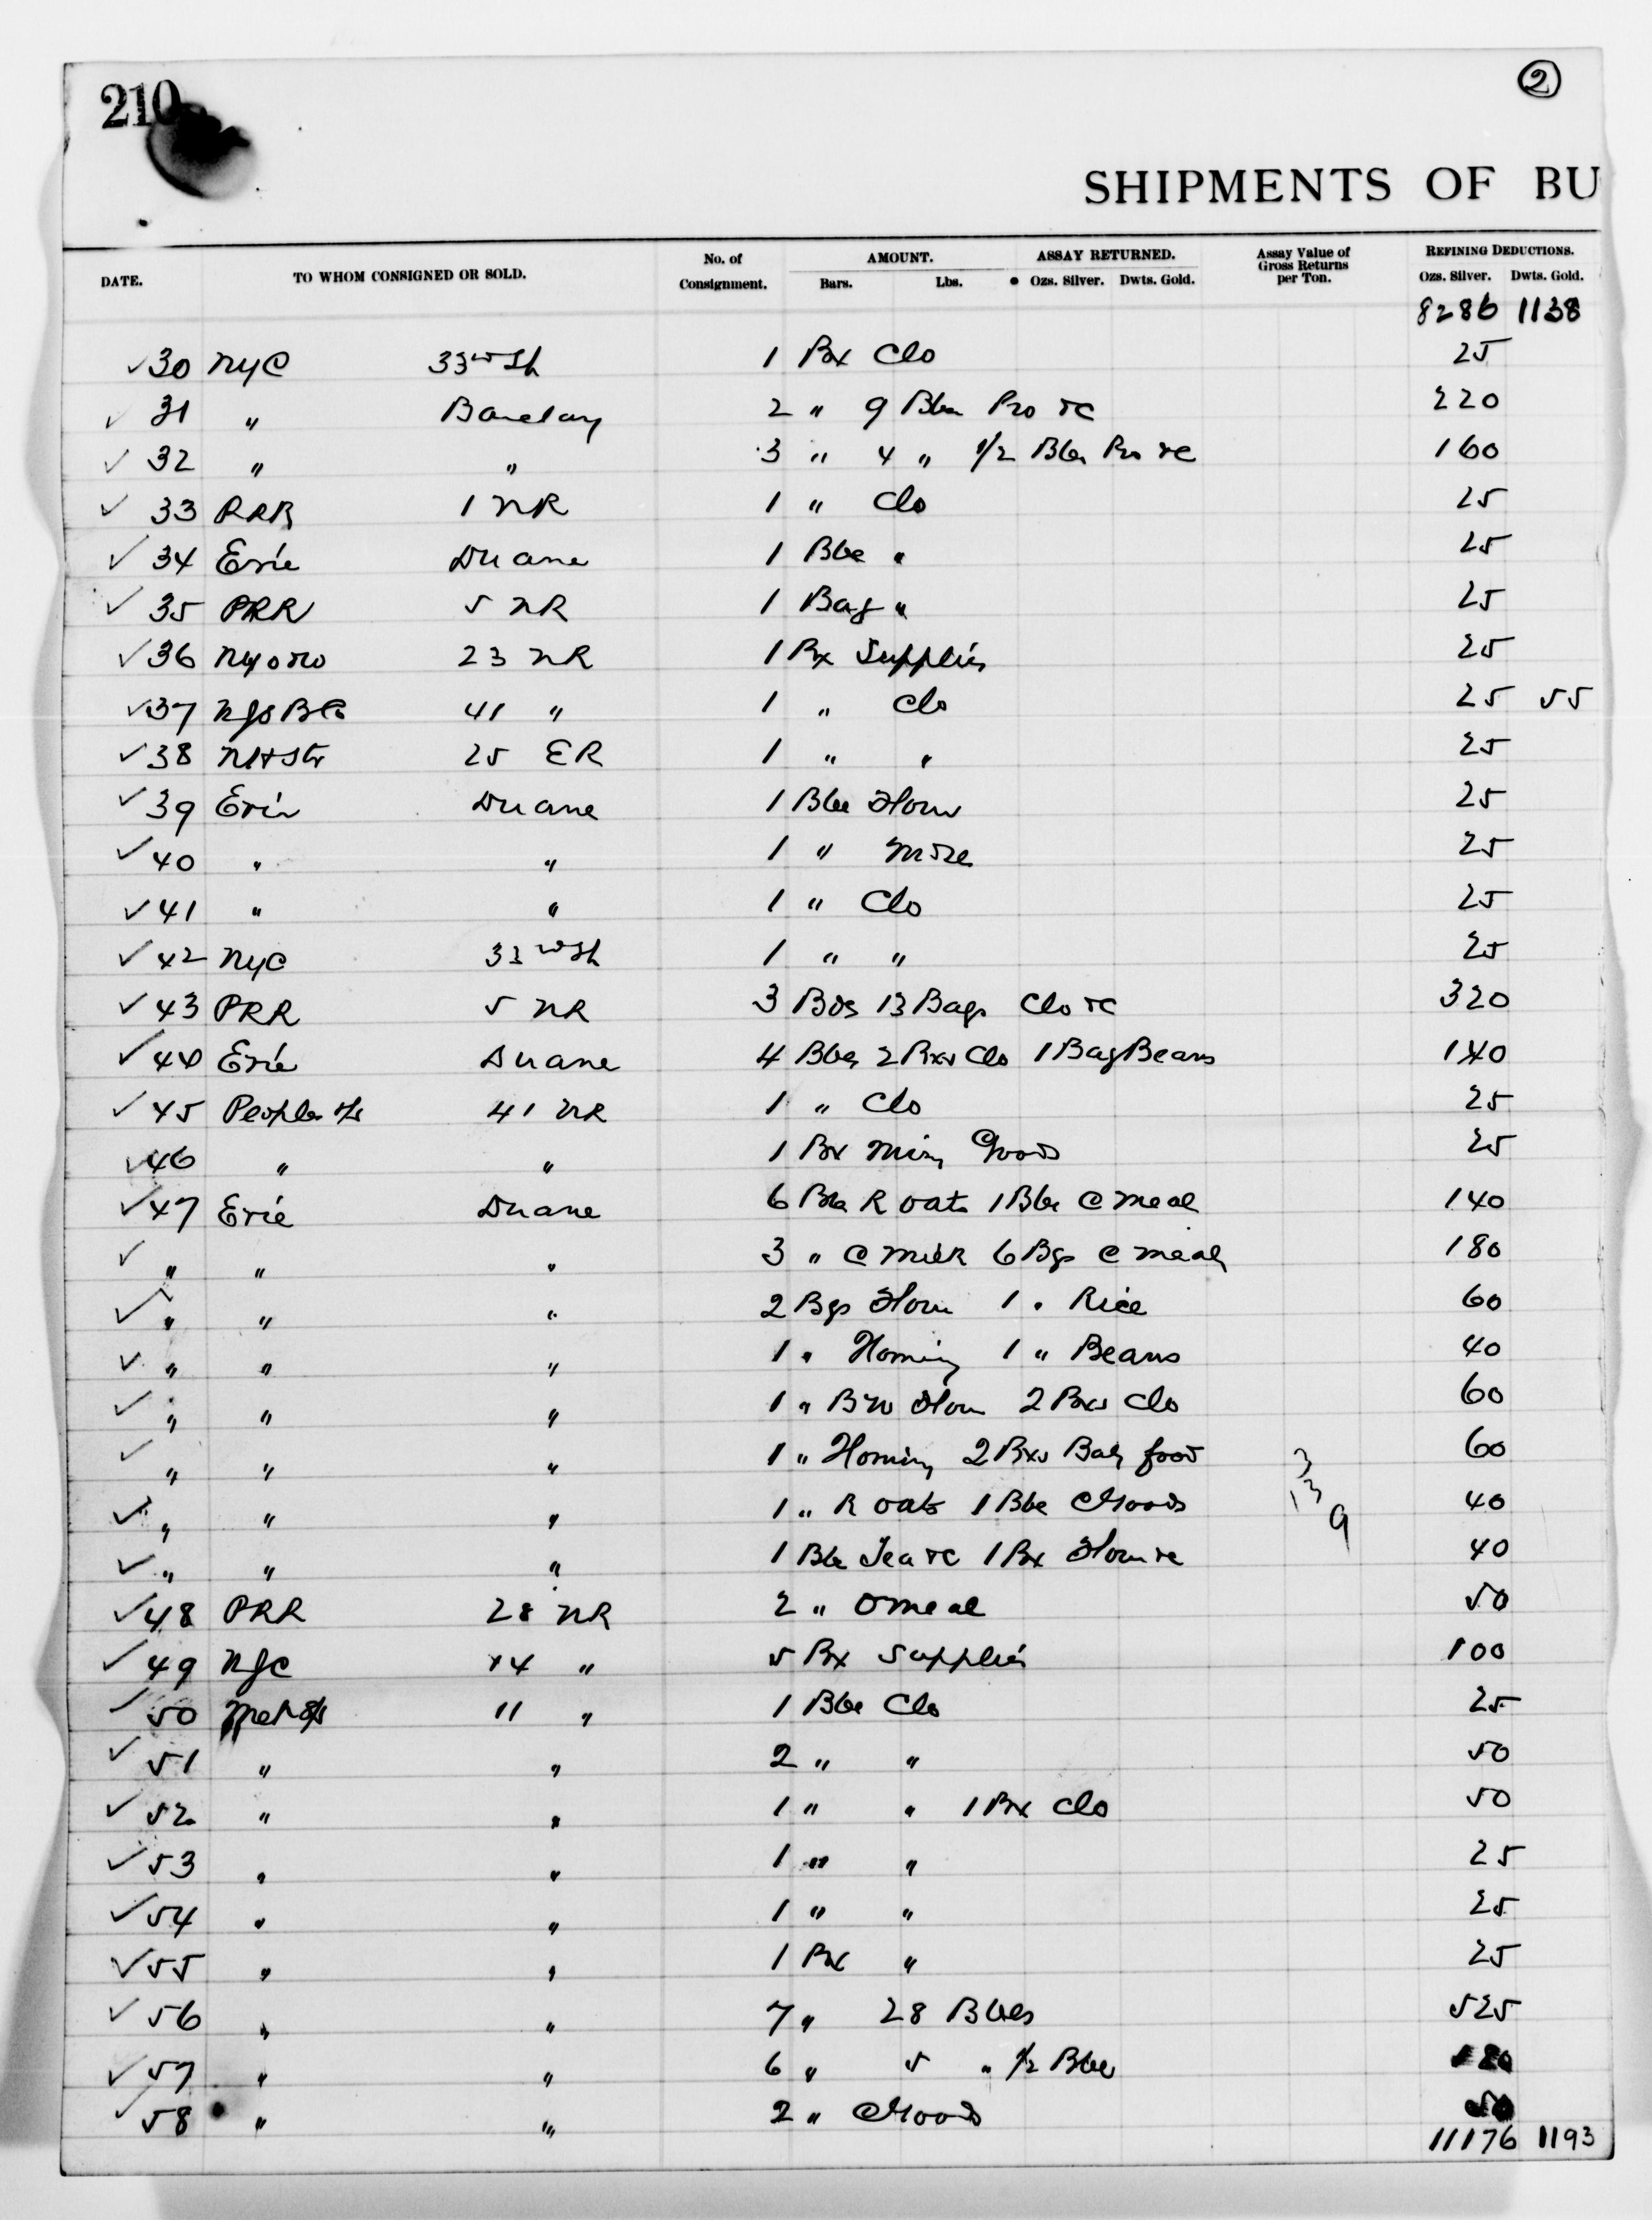 210 ②
SHIPMENTS OF BU
DATE. TO WHOM CONSIGNED OR SOLD. No. of Consignment. AMOUNT. Bars. Lbs. ASSAY RETURNED. Ozs. Silver. Dwts. Gold. Assay Value of Gross Returns per Ton. REFINING DEDUCTIONS. Ozs. Silver. Dwts. Gold.
8286 1138
✓ 30 NYC 33rd St 1 Bx Clo 25
✓ 31 " Barclay 2 " 9 Bbls Pro &c 220
✓ 32 " " 3 " 4 " 1/2 Bbls Pro &c 160
✓ 33 PRR 1 NR 1 " Clo 25
✓ 34 Erie Duane 1 Bbl " 25
✓ 35 PRR 5 NR 1 Bag " 25
✓ 36 23 NR 1 Bx Supplies 25
✓ 37 41 " 1 " Clo 25 55
✓ 38 25 ER 1 " " 25
✓ 39 Erie Duane 1 Bbl Flour 25
✓ 40 " " 1 " 25
✓ 41 " " 1 " Clo 25
✓ 42 NYC 33rd St 1 " " 25
✓ 43 PRR 5 NR 3 13 Bags Clo &c 320
✓ 44 Erie Duane 4 Bbls 2 Bxs Clo 1 Bag Beans 140
✓ 45 Peoples 41 NR 1 " Clo 25
✓ 46 " " 1 Bx Goods 25
✓ 47 Erie Duane 6 Bbls R Oats 1 Bbl C Meal 140
✓ " " " 3 " C Milk 6 Bgs C Meal 180
✓ " " " 2 Bgs Flour 1 " Rice 60
✓ " " " 1 " Hominy 1 " Beans 40
✓ " " " 1 " Flour 2 Bxs Clo 60
✓ " " " 1 " Hominy 2 Bxs Baby food 3 60
✓ " " " 1 " R Oats 1 Bbl C Goods 13 9 40
✓ " " " 1 Bbl Tea &c 1 Bx Flour &c 40
✓ 48 PRR 28 NR 2 " O Meal 50
✓ 49 NJC 14 " 5 Bx Supplies 100
✓ 50 11 " 1 Bbl Clo 25
✓ 51 " " 2 " " 50
✓ 52 " " 1 " " 1 Bx Clo 50
✓ 53 " " 1 " " 25
✓ 54 " " 1 " " 25
✓ 55 " " 1 Bx " 25
✓ 56 " " 7 " 28 Bbls 525
✓ 57 " " 6 " 5 " 1/2 Bbl
✓ 58 " " 2 " C Goods 50
11176 1193